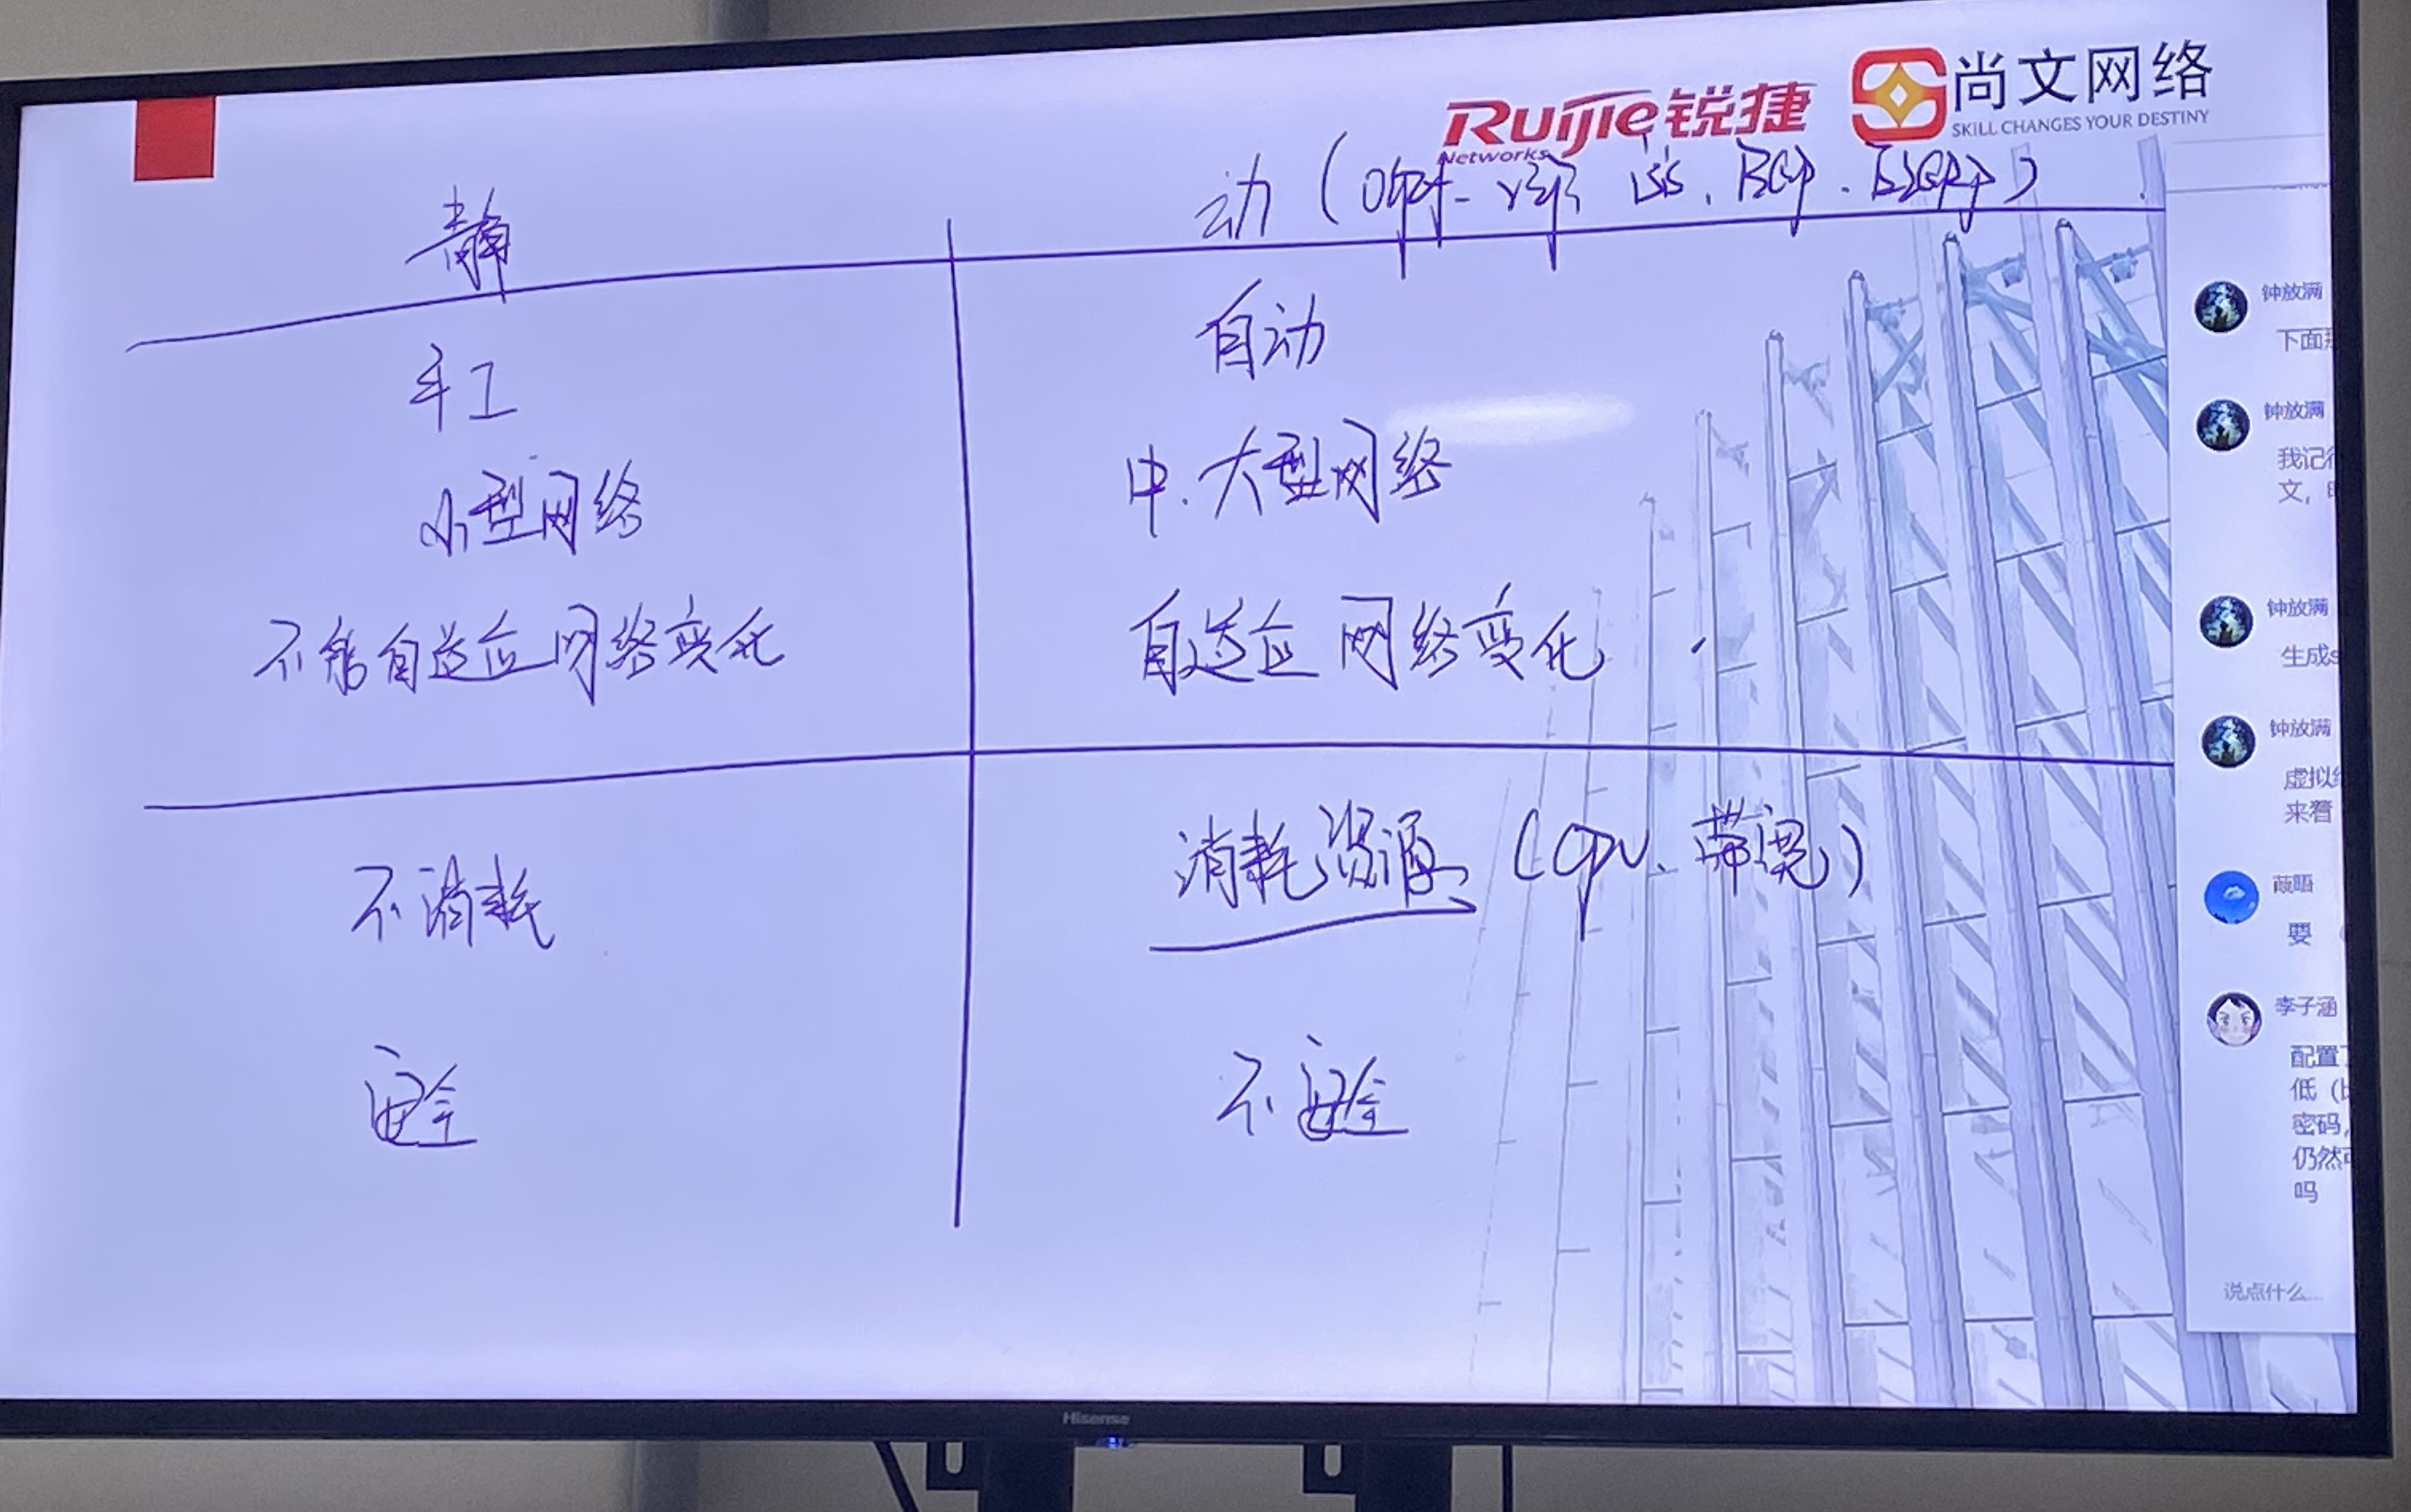 Ruijie锐捷
Networks
尚文网络
SKILL CHANGES YOUR DESTINY
静
动（ospf. rip isis. BGP. EIGRP）
手工
自动
小型网络
中.大型网络
不能自适应网络变化
自适应网络变化
不消耗
消耗资源（cpu、带宽）
安全
不安全
钟放满
下面
钟放满
我记得
文，
钟放满
生成s
钟放满
虚拟
来着
要
李子涵
配置
低（
密码，
仍然
吗
说点什么...
Hisense